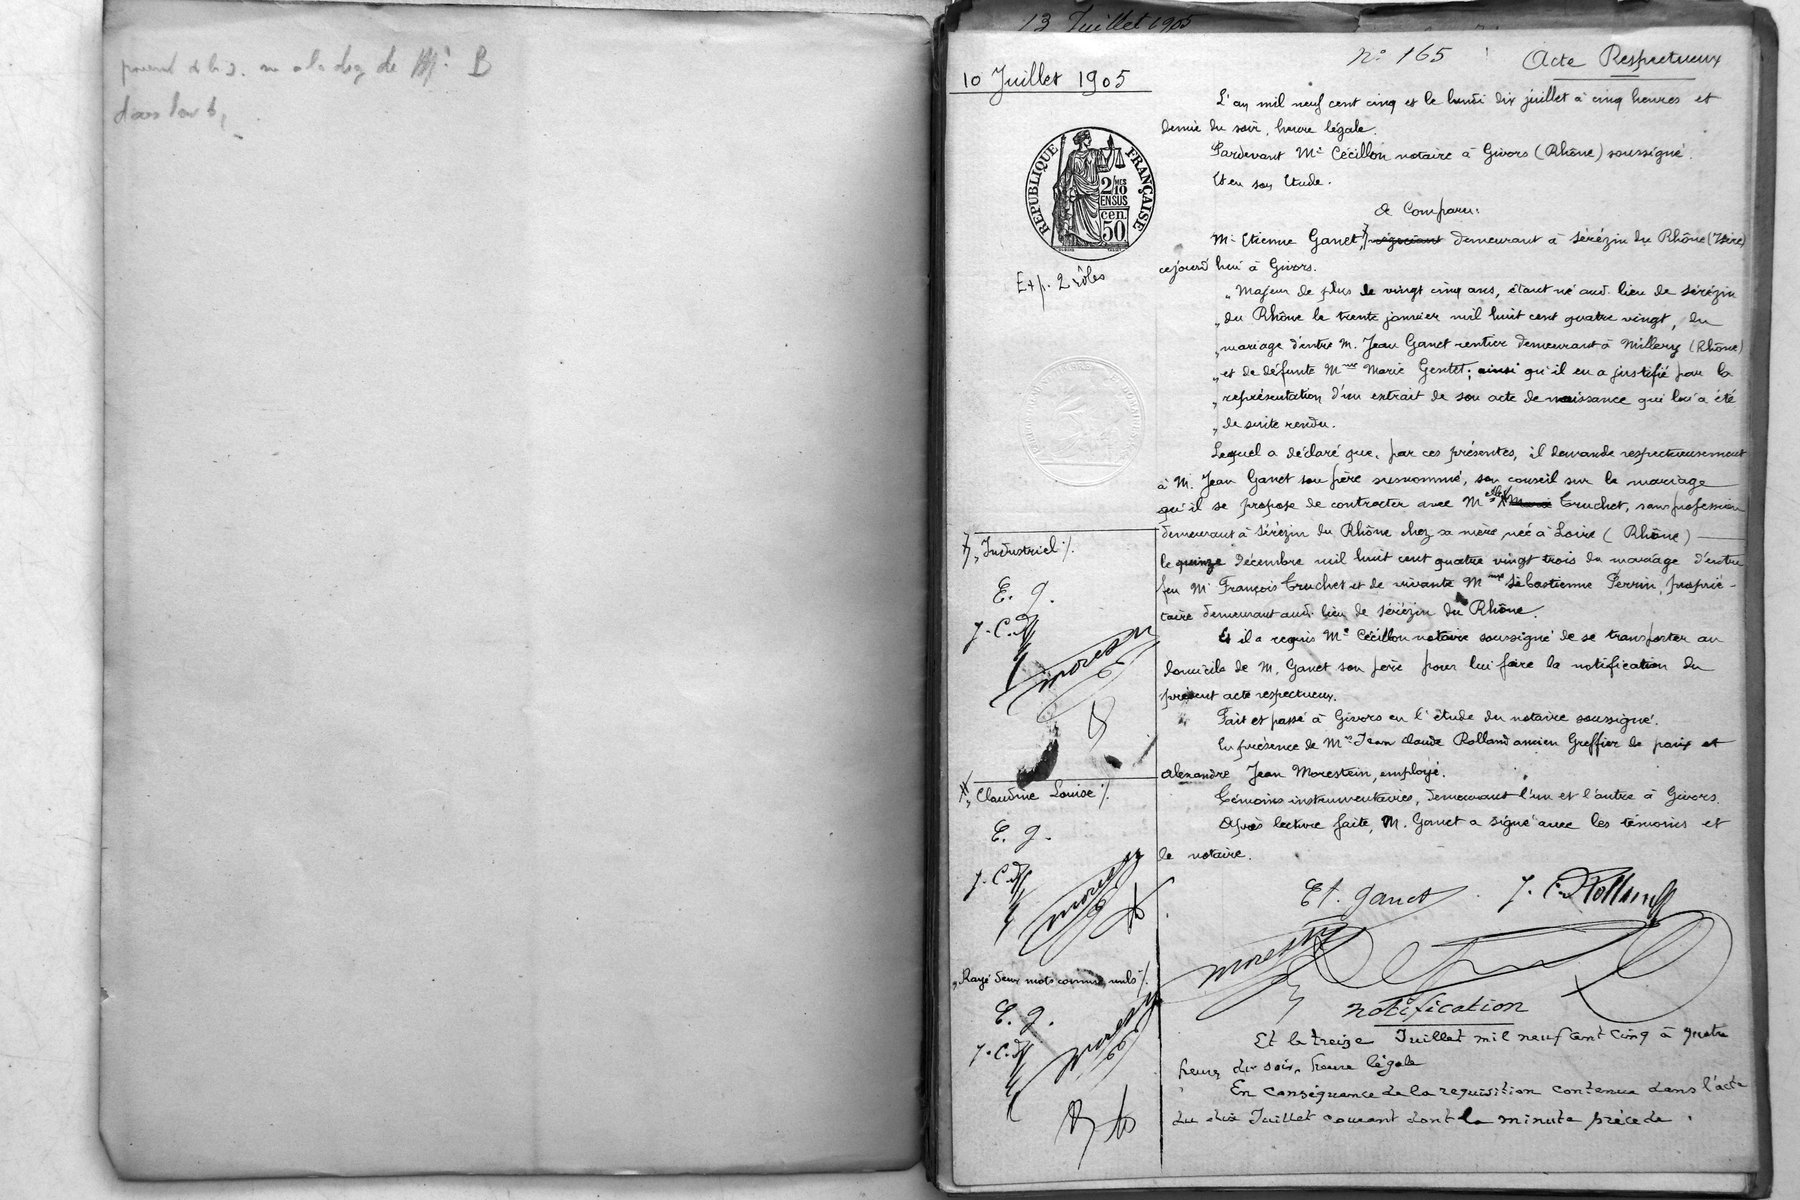 de Me B
13 Juillet 1905
10 Juillet 1905
No 165
Acte Respectueux
L'an mil neuf cent cinq et le lundi dix juillet à cinq heures et
demie du soir, heure légale.
Pardevant Me Cécillon notaire à Givors (Rhône) soussigné.
Et en son Etude.
A Comparu:
Mr Etienne Ganet, négociant demeurant à Sérézin du Rhône (Isère)
cejourd'hui à Givors.
„ Majeur de plus de vingt cinq ans, étant né aud. lieu de Sérézin
„ du Rhône le trente janvier mil huit cent quatre vingt, du
„ mariage d'entre M. Jean Ganet rentier demeurant à Millery (Rhône)
„ et de défunte Mme Marie Gentet; ainsi qu'il en a justifié par la
„ représentation d'un extrait de son acte de naissance qui lui a été
„ de suite rendu.
Lequel a déclaré que, par ces présentes, il demande respectueusement
à M. Jean Ganet son père susnommé, son conseil sur le mariage
qu'il se propose de contracter avec Melle Marie Truchet, sans profession
demeurant à Sérézin du Rhône chez sa mère, née à Loire (Rhône)
le quinze décembre mil huit cent quatre vingt trois du mariage d'entre
feu Mr François Truchet et de vivante Mme Sébastienne Perrin, proprié-
taire demeurant aud. lieu de Sérézin du Rhône.
Et il a requis Me Cécillon notaire soussigné de se transporter au
domicile de M. Ganet son père pour lui faire la notification du
présent acte respectueux.
Fait et passé à Givors en l'étude du notaire soussigné.
En présence de Mrs Jean Claude Rolland ancien Greffier de paix et
Alexandre Jean Morestin, employé.
Témoins instrumentaires, demeurant l'un et l'autre à Givors.
Après lecture faite, M. Ganet a signé avec les témoins et
le notaire.
Et. Ganet
J. C. Rolland
Morestin
REPUBLIQUE FRANÇAISE
2/10MES
EN SUS
50 cen.
Exp. 2 rôles
„ Industriel ./.
E. g.
J. C. R
Morestin
„ Claudine Louise ./.
E. g.
J. C. R
Morestin
„ Rayé deux mots comme nuls ./.
E. g.
J. C. R
Morestin
Notification
Et le treize Juillet mil neuf cent cinq à quatre
heures du soir, heure légale
En conséquence de la requisition contenue dans l'acte
du dix Juillet courant dont la minute précède.